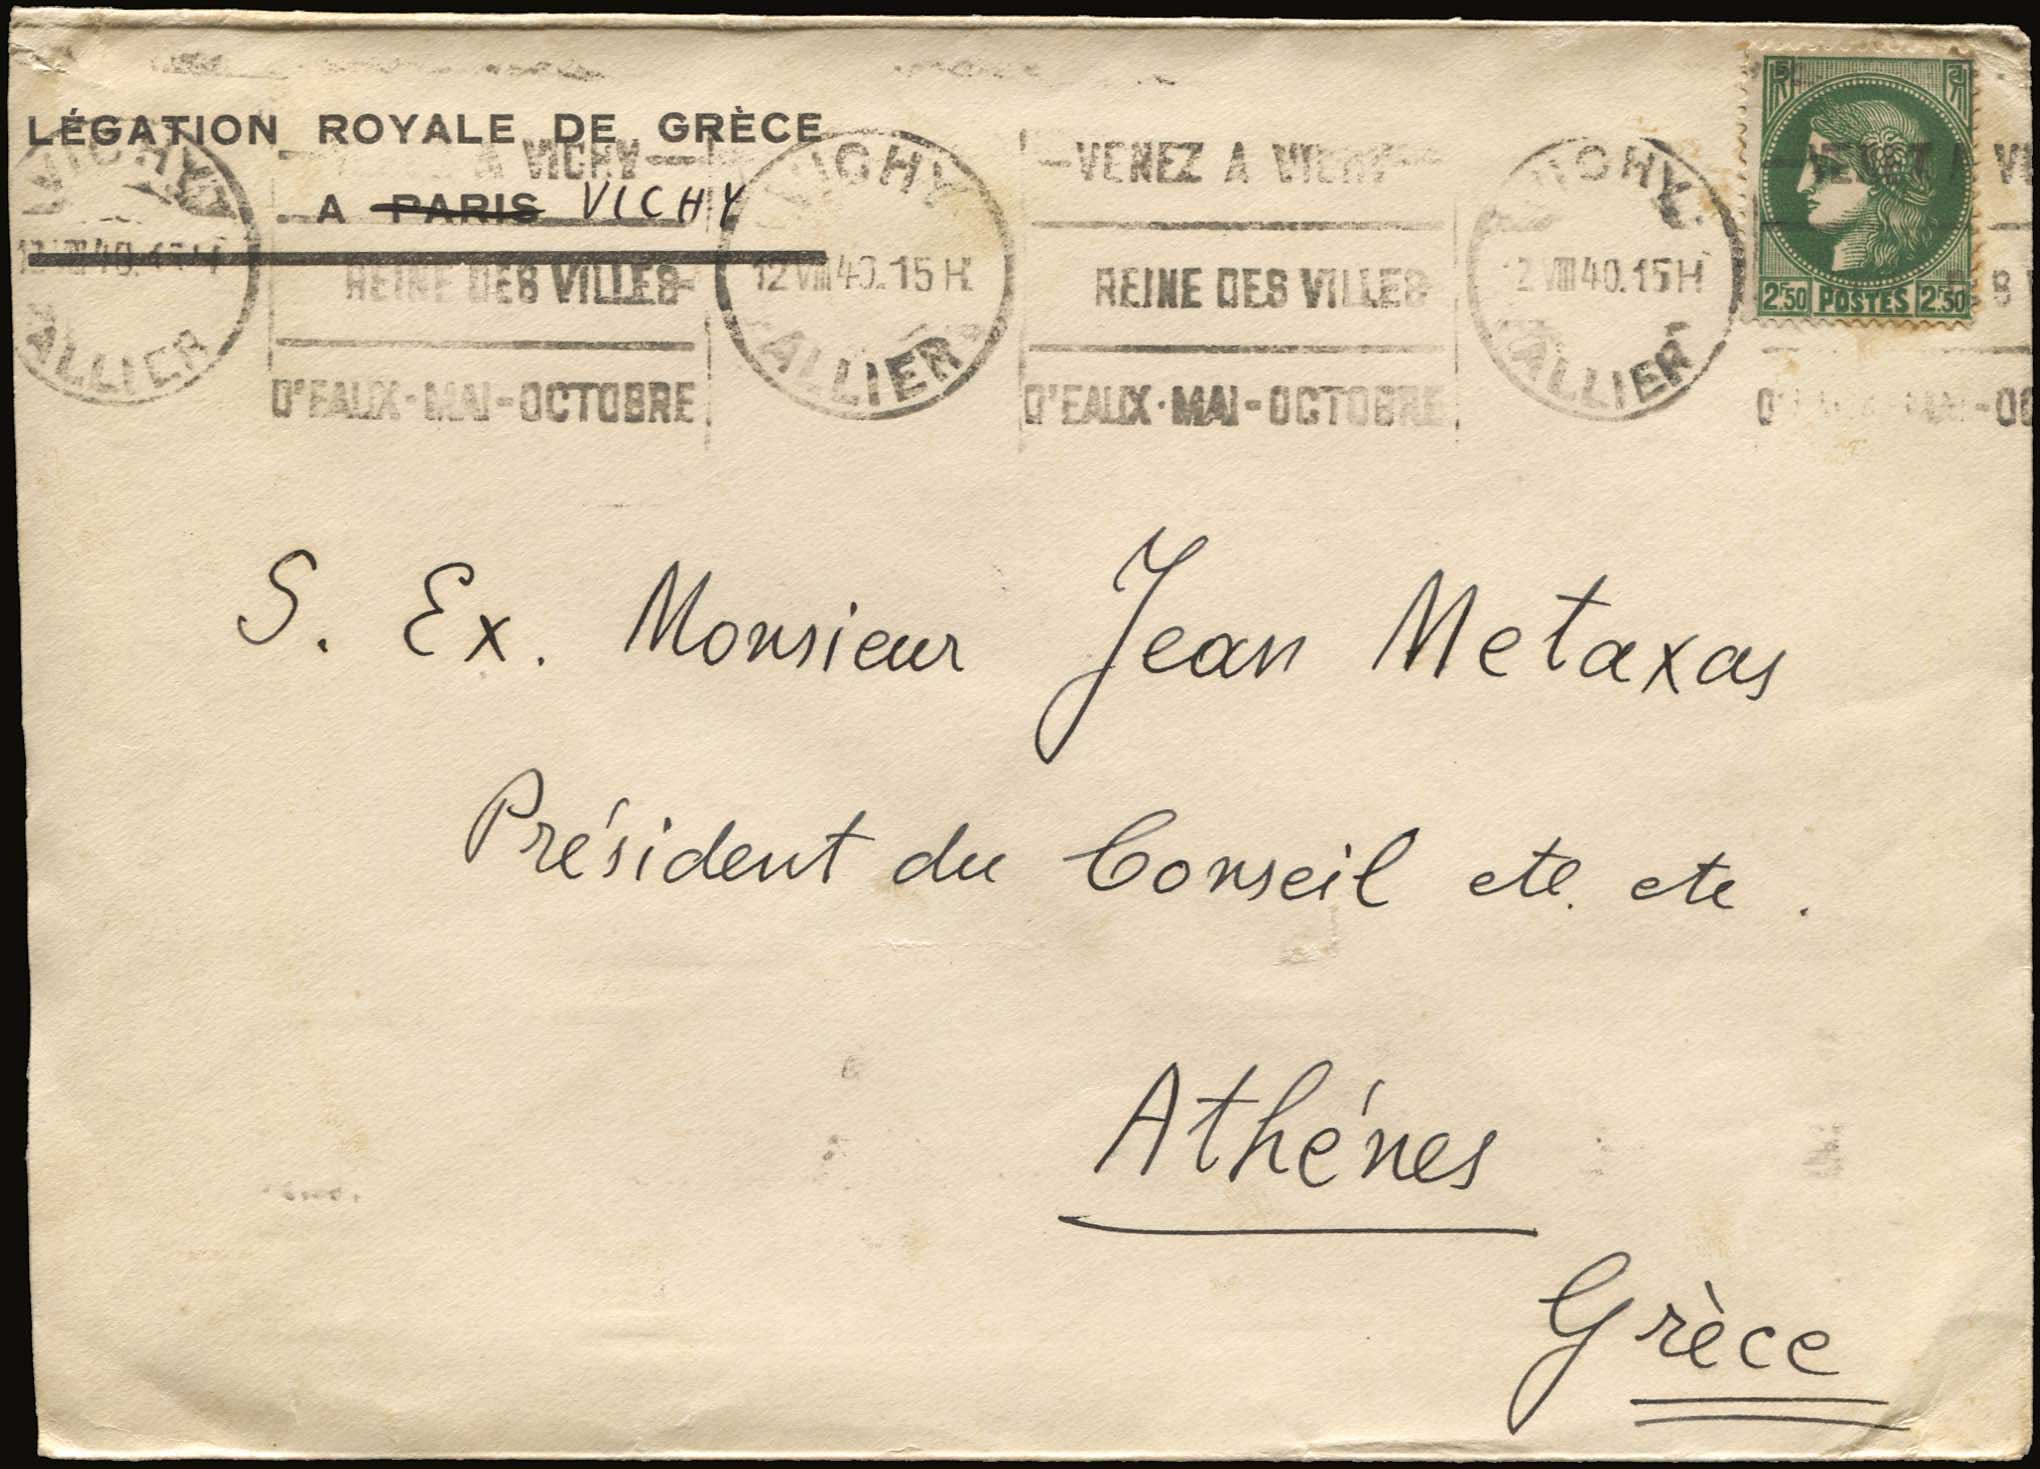 LÉGATION ROYALE DE GRÈCE
A PARIS VICHY
VICHY
ALLIER
A VICHY
REINE DES VILLES
D'EAUX·MAI-OCTOBRE
VICHY
12 VIII 40.15 H.
ALLIER
VENEZ A VICHY
REINE DES VILLES
D'EAUX·MAI-OCTOBRE
VICHY
12 VIII 40.15 H
ALLIER
2F50 POSTES 2F50
S. Ex. Monsieur Jean Metaxas
Président du Conseil etc. etc.
Athénes
Grèce